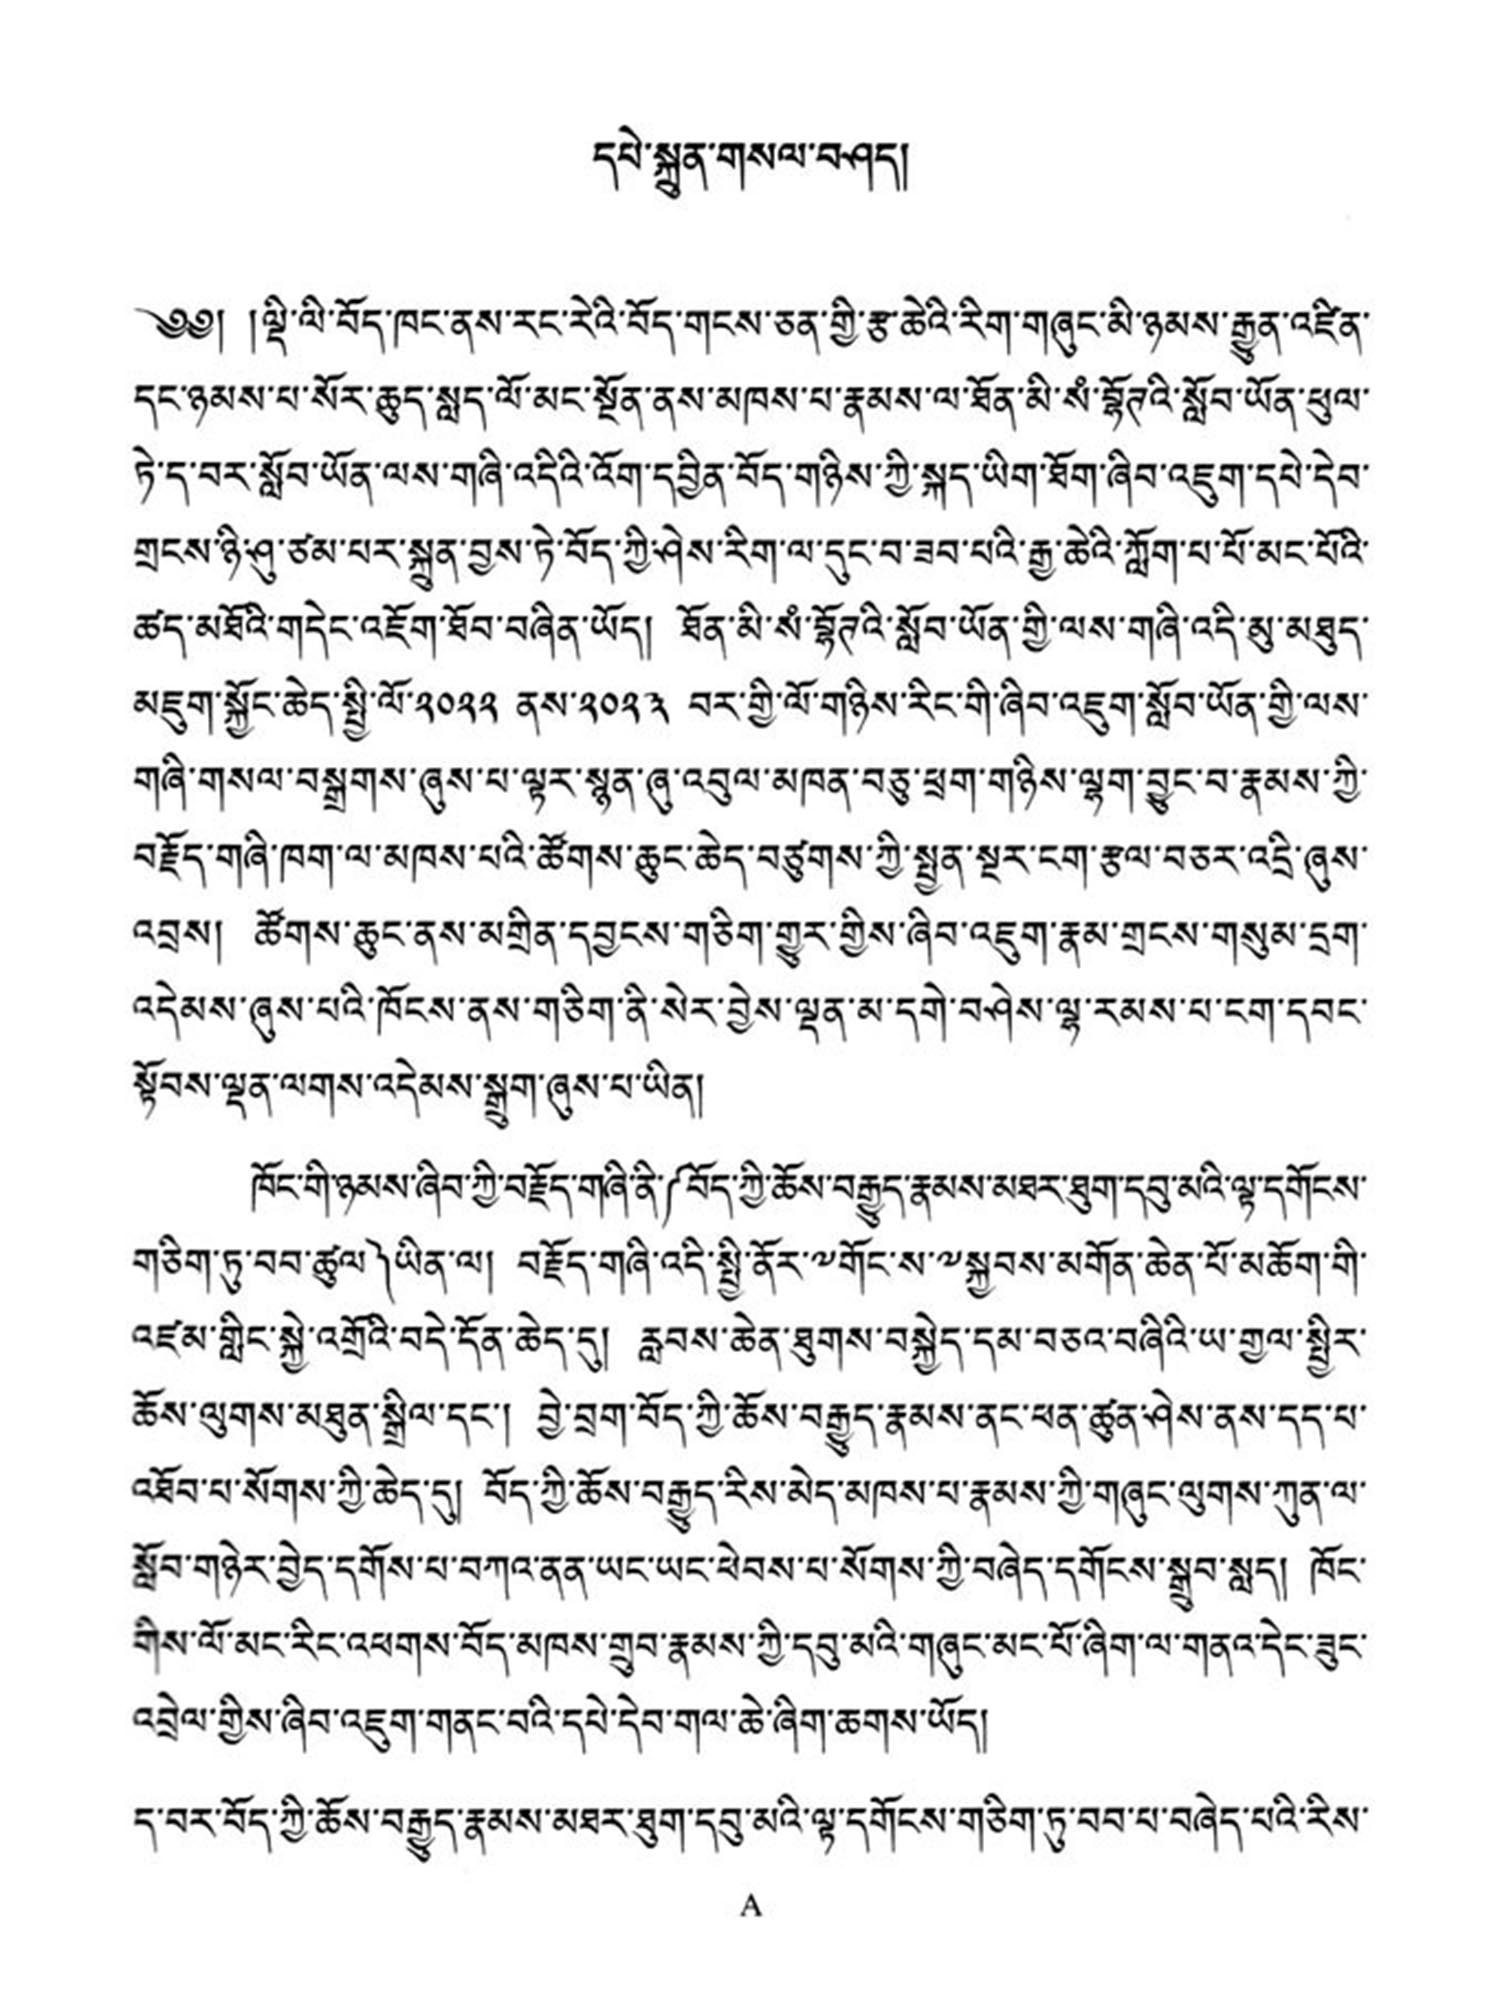 དཔེ་སྐྲུན་གསལ་བཤད།
༄༅། །ལྡི་ལི་བོད་ཁང་ནས་རང་རེའི་བོད་གངས་ཅན་གྱི་རྩ་ཆེའི་རིག་གཞུང་མི་ཉམས་རྒྱུན་འཛིན་
དང་ཉམས་པ་སོར་ཆུད་སླད་ལོ་མང་སྔོན་ནས་མཁས་པ་རྣམས་ལ་ཐོན་མི་སཾ་བྷོཊའི་སློབ་ཡོན་ཕུལ་
ཏེ་ད་བར་སློབ་ཡོན་ལས་གཞི་འདིའི་འོག་དབྱིན་བོད་གཉིས་ཀྱི་སྐད་ཡིག་ཐོག་ཞིབ་འཇུག་དཔེ་དེབ་
གྲངས་ཉི་ཤུ་ཙམ་པར་སྐྲུན་བྱས་ཏེ་བོད་ཀྱི་ཤེས་རིག་ལ་དུང་བ་ཟབ་པའི་རྒྱ་ཆེའི་ཀློག་པ་པོ་མང་པོའི་
ཚད་མཐོའི་གདེང་འཇོག་ཐོབ་བཞིན་ཡོད། ཐོན་མི་སཾ་བྷོཊའི་སློབ་ཡོན་གྱི་ལས་གཞི་འདི་མུ་མཐུད་
མཇུག་སྐྱོང་ཆེད་སྤྱི་ལོ་༢༠༢༢ ནས་༢༠༢༣ བར་གྱི་ལོ་གཉིས་རིང་གི་ཞིབ་འཇུག་སློབ་ཡོན་གྱི་ལས་
གཞི་གསལ་བསྒྲགས་ཞུས་པ་ལྟར་སྙན་ཞུ་འབུལ་མཁན་བཅུ་ཕྲག་གཉིས་ལྷག་བྱུང་བ་རྣམས་ཀྱི་
བརྗོད་གཞི་ཁག་ལ་མཁས་པའི་ཚོགས་ཆུང་ཆེད་བཙུགས་ཀྱི་སྤྱན་སྔར་ངག་རྩལ་བཅར་འདྲི་ཞུས་
འབྲས། ཚོགས་ཆུང་ནས་མགྲིན་དབྱངས་གཅིག་གྱུར་གྱིས་ཞིབ་འཇུག་རྣམ་གྲངས་གསུམ་དྲག་
འདེམས་ཞུས་པའི་ཁོངས་ནས་གཅིག་ནི་སེར་བྱེས་ལྡན་མ་དགེ་བཤེས་ལྷ་རམས་པ་ངག་དབང་
སྟོབས་ལྡན་ལགས་འདེམས་སྒྲུག་ཞུས་པ་ཡིན།
ཁོང་གི་ཉམས་ཞིབ་ཀྱི་བརྗོད་གཞི་ནི་༼བོད་ཀྱི་ཆོས་བརྒྱུད་རྣམས་མཐར་ཐུག་དབུ་མའི་ལྟ་དགོངས་
གཅིག་ཏུ་བབ་ཚུལ༽ཡིན་ལ། བརྗོད་གཞི་འདི་སྤྱི་ནོར་༧གོང་ས་༧སྐྱབས་མགོན་ཆེན་པོ་མཆོག་གི་
འཛམ་གླིང་སྐྱེ་འགྲོའི་བདེ་དོན་ཆེད་དུ། རླབས་ཆེན་ཐུགས་བསྐྱེད་དམ་བཅའ་བཞིའི་ཡ་གྱལ་སྤྱིར་
ཆོས་ལུགས་མཐུན་སྒྲིལ་དང་། བྱེ་བྲག་བོད་ཀྱི་ཆོས་བརྒྱུད་རྣམས་ནང་ཕན་ཚུན་ཤེས་ནས་དད་པ་
འཐོབ་པ་སོགས་ཀྱི་ཆེད་དུ། བོད་ཀྱི་ཆོས་བརྒྱུད་རིས་མེད་མཁས་པ་རྣམས་ཀྱི་གཞུང་ལུགས་ཀུན་ལ་
སློབ་གཉེར་བྱེད་དགོས་པ་བཀའ་ནན་ཡང་ཡང་ཕེབས་པ་སོགས་ཀྱི་བཞེད་དགོངས་སྒྲུབ་སླད། ཁོང་
གིས་ལོ་མང་རིང་འཕགས་བོད་མཁས་གྲུབ་རྣམས་ཀྱི་དབུ་མའི་གཞུང་མང་པོ་ཞིག་ལ་གནའ་དེང་ཟུང་
འབྲེལ་གྱིས་ཞིབ་འཇུག་གནང་བའི་དཔེ་དེབ་གལ་ཆེ་ཞིག་ཆགས་ཡོད།
ད་བར་བོད་ཀྱི་ཆོས་བརྒྱུད་རྣམས་མཐར་ཐུག་དབུ་མའི་ལྟ་དགོངས་གཅིག་ཏུ་བབ་པ་བཞེད་པའི་རིས་
A